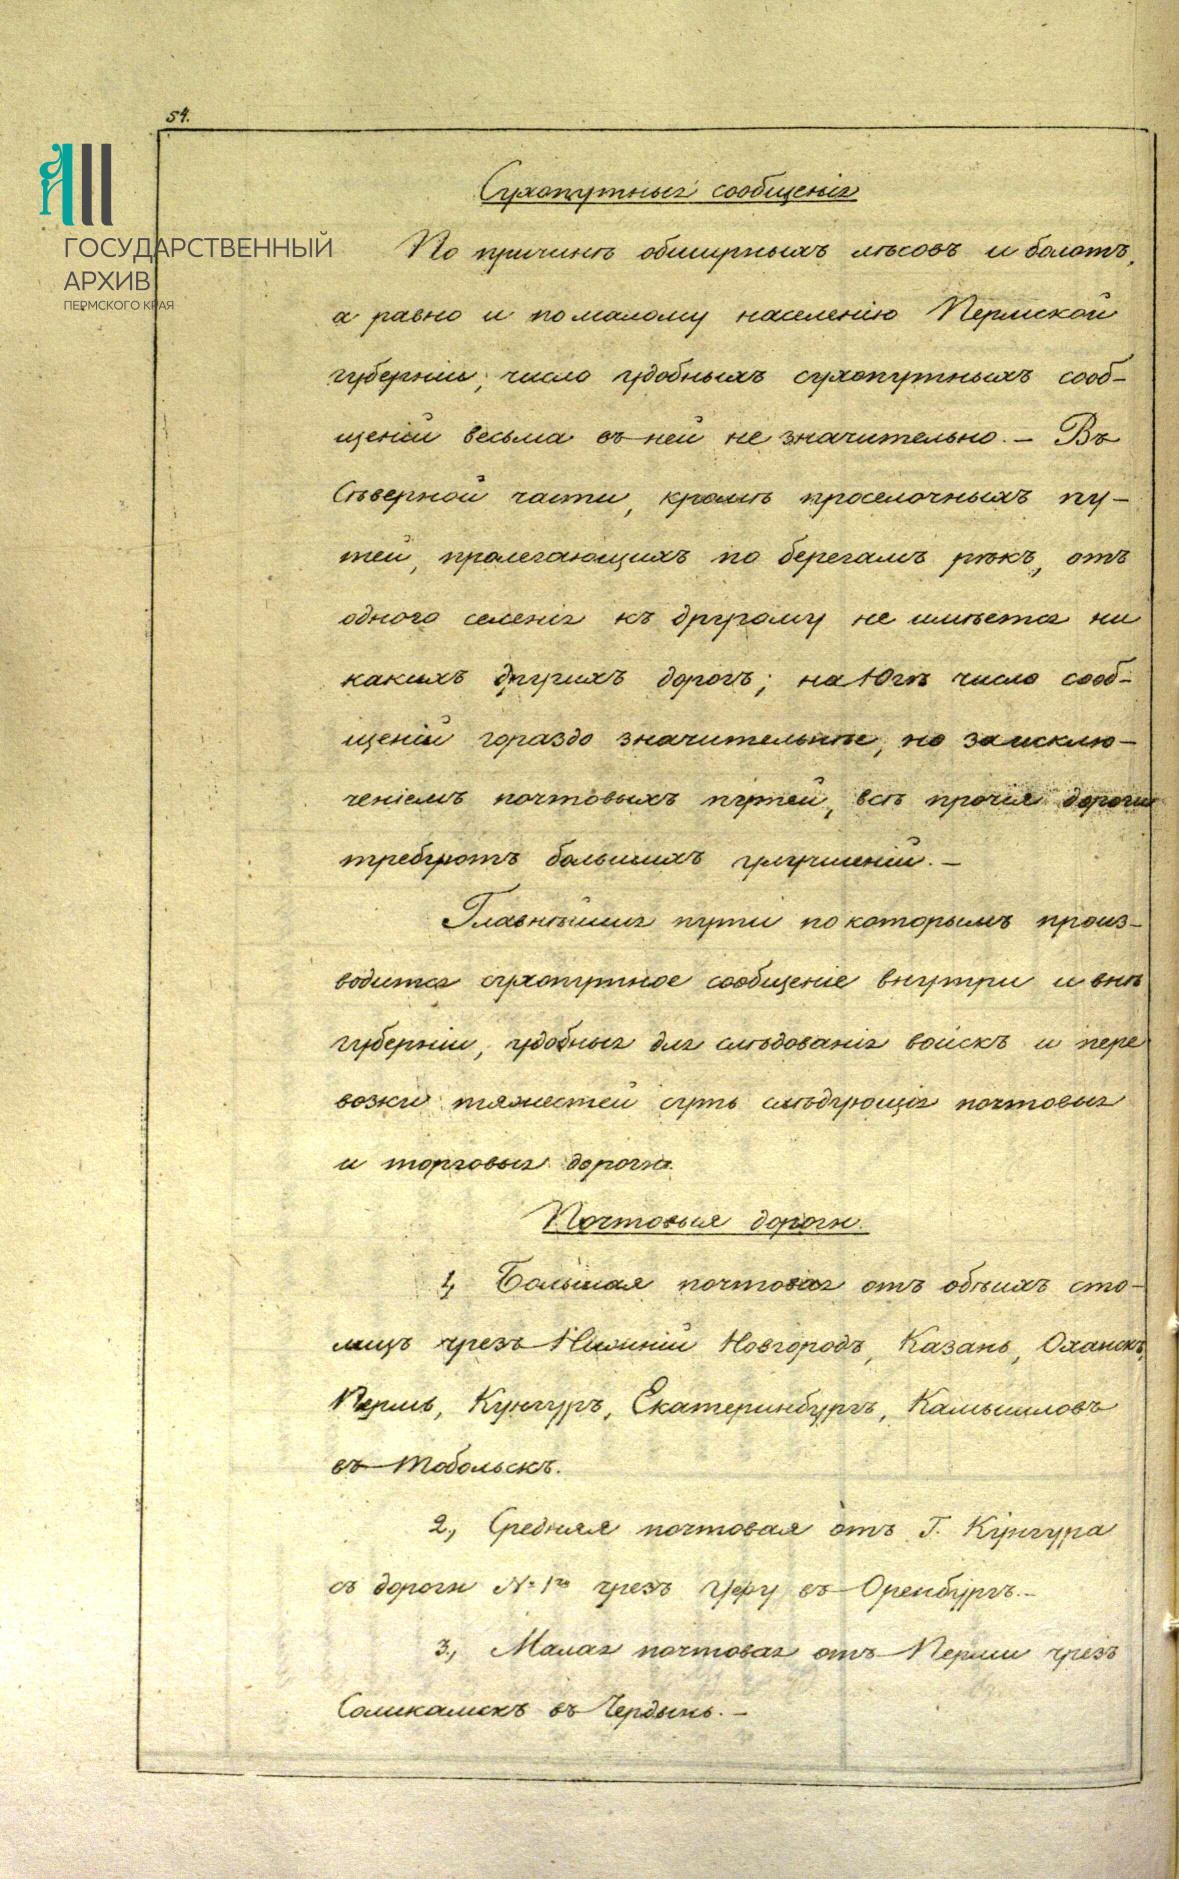 54.
ГОСУДАРСТВЕННЫЙ
АРХИВ
ПЕРМСКОГО КРАЯ
Сухопутныя сообщенія
По причинѣ обширныхъ лѣсовъ и болотъ,
а равно и по малому населенію Пермской
губерніи, число удобныхъ сухопутныхъ сооб-
щеній весьма въ ней не значительно. — Въ
Сѣверной части, кромѣ проселочныхъ пу-
тей, пролегающихъ по берегамъ рѣкъ, отъ
одного селенія къ другому не имѣется ни
какихъ другихъ дорогъ; на Югѣ число сооб-
щеній гораздо значительнѣе, но за исклю-
ченіемъ почтовыхъ путей, всѣ прочія дороги
требуютъ большихъ улучшеній. —
Главнѣйшія пути по которымъ произ-
водится сухопутное сообщеніе внутри и внѣ
губерніи, удобныя для слѣдованія войскъ и пере
возки тяжестей суть слѣдующія почтовыя
и торговыя дороги.
Почтовыя дороги.
1, Большая почтовая отъ обѣихъ сто-
лицъ чрезъ Нижній Новгородъ, Казань, Оханскъ,
Пермь, Кунгуръ, Екатеринбургъ, Камышловъ
въ Тобольскъ.
2., Средняя почтовая отъ Г. Кунгура
съ дороги № 1го чрезъ Уфу въ Оренбургъ. —
3., Малая почтовая отъ Перми чрезъ
Соликамскъ въ Чердынь. —